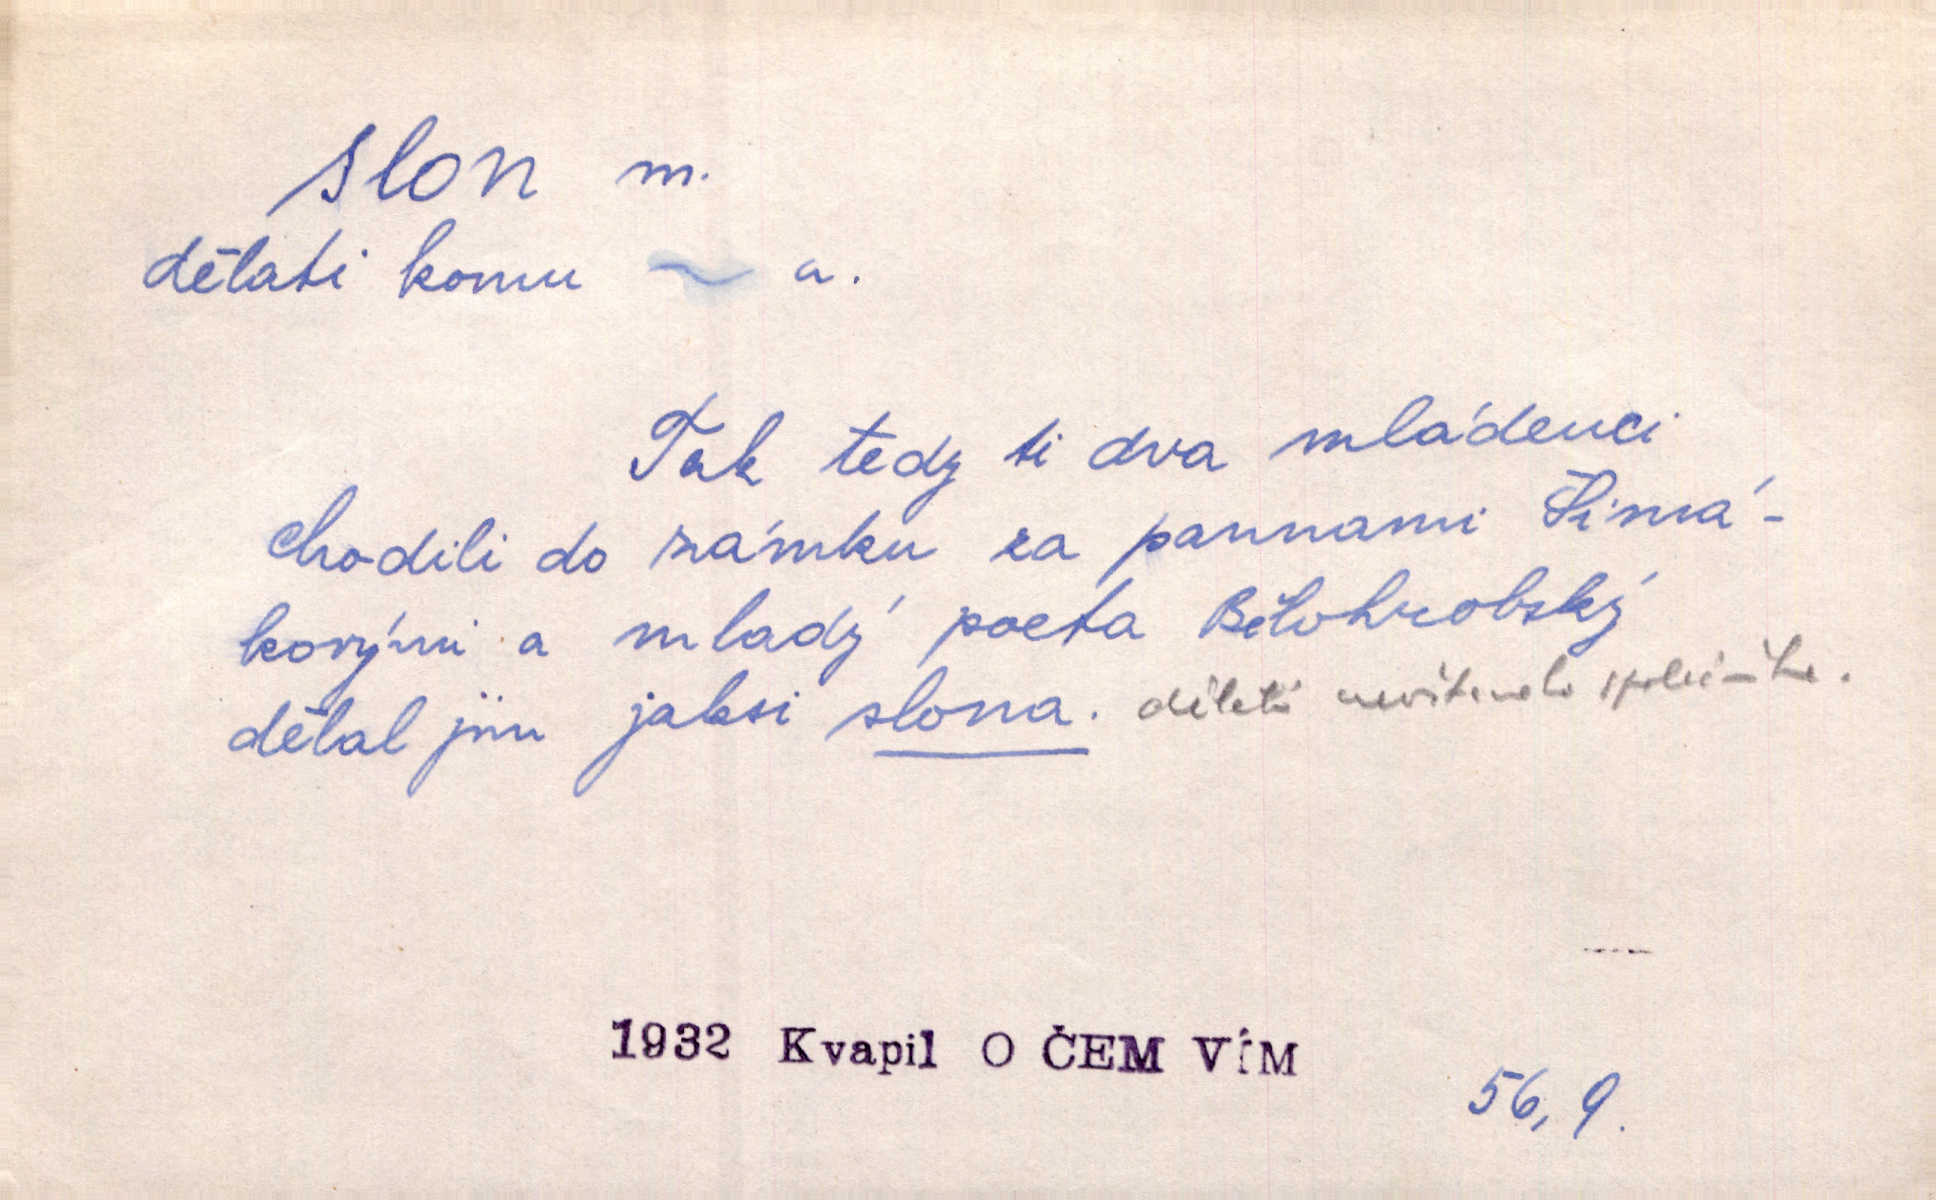 slon m.
dělati komu ~ a.
Tak tedy ti dva mládenci
chodili do zámku za pannami Šimá-
kovými a mladý poeta Bělohrobský
dělal jim jaksi slona. dělati nevítaného společníka.
1932 Kvapil O ČEM VÍM
56, 9.